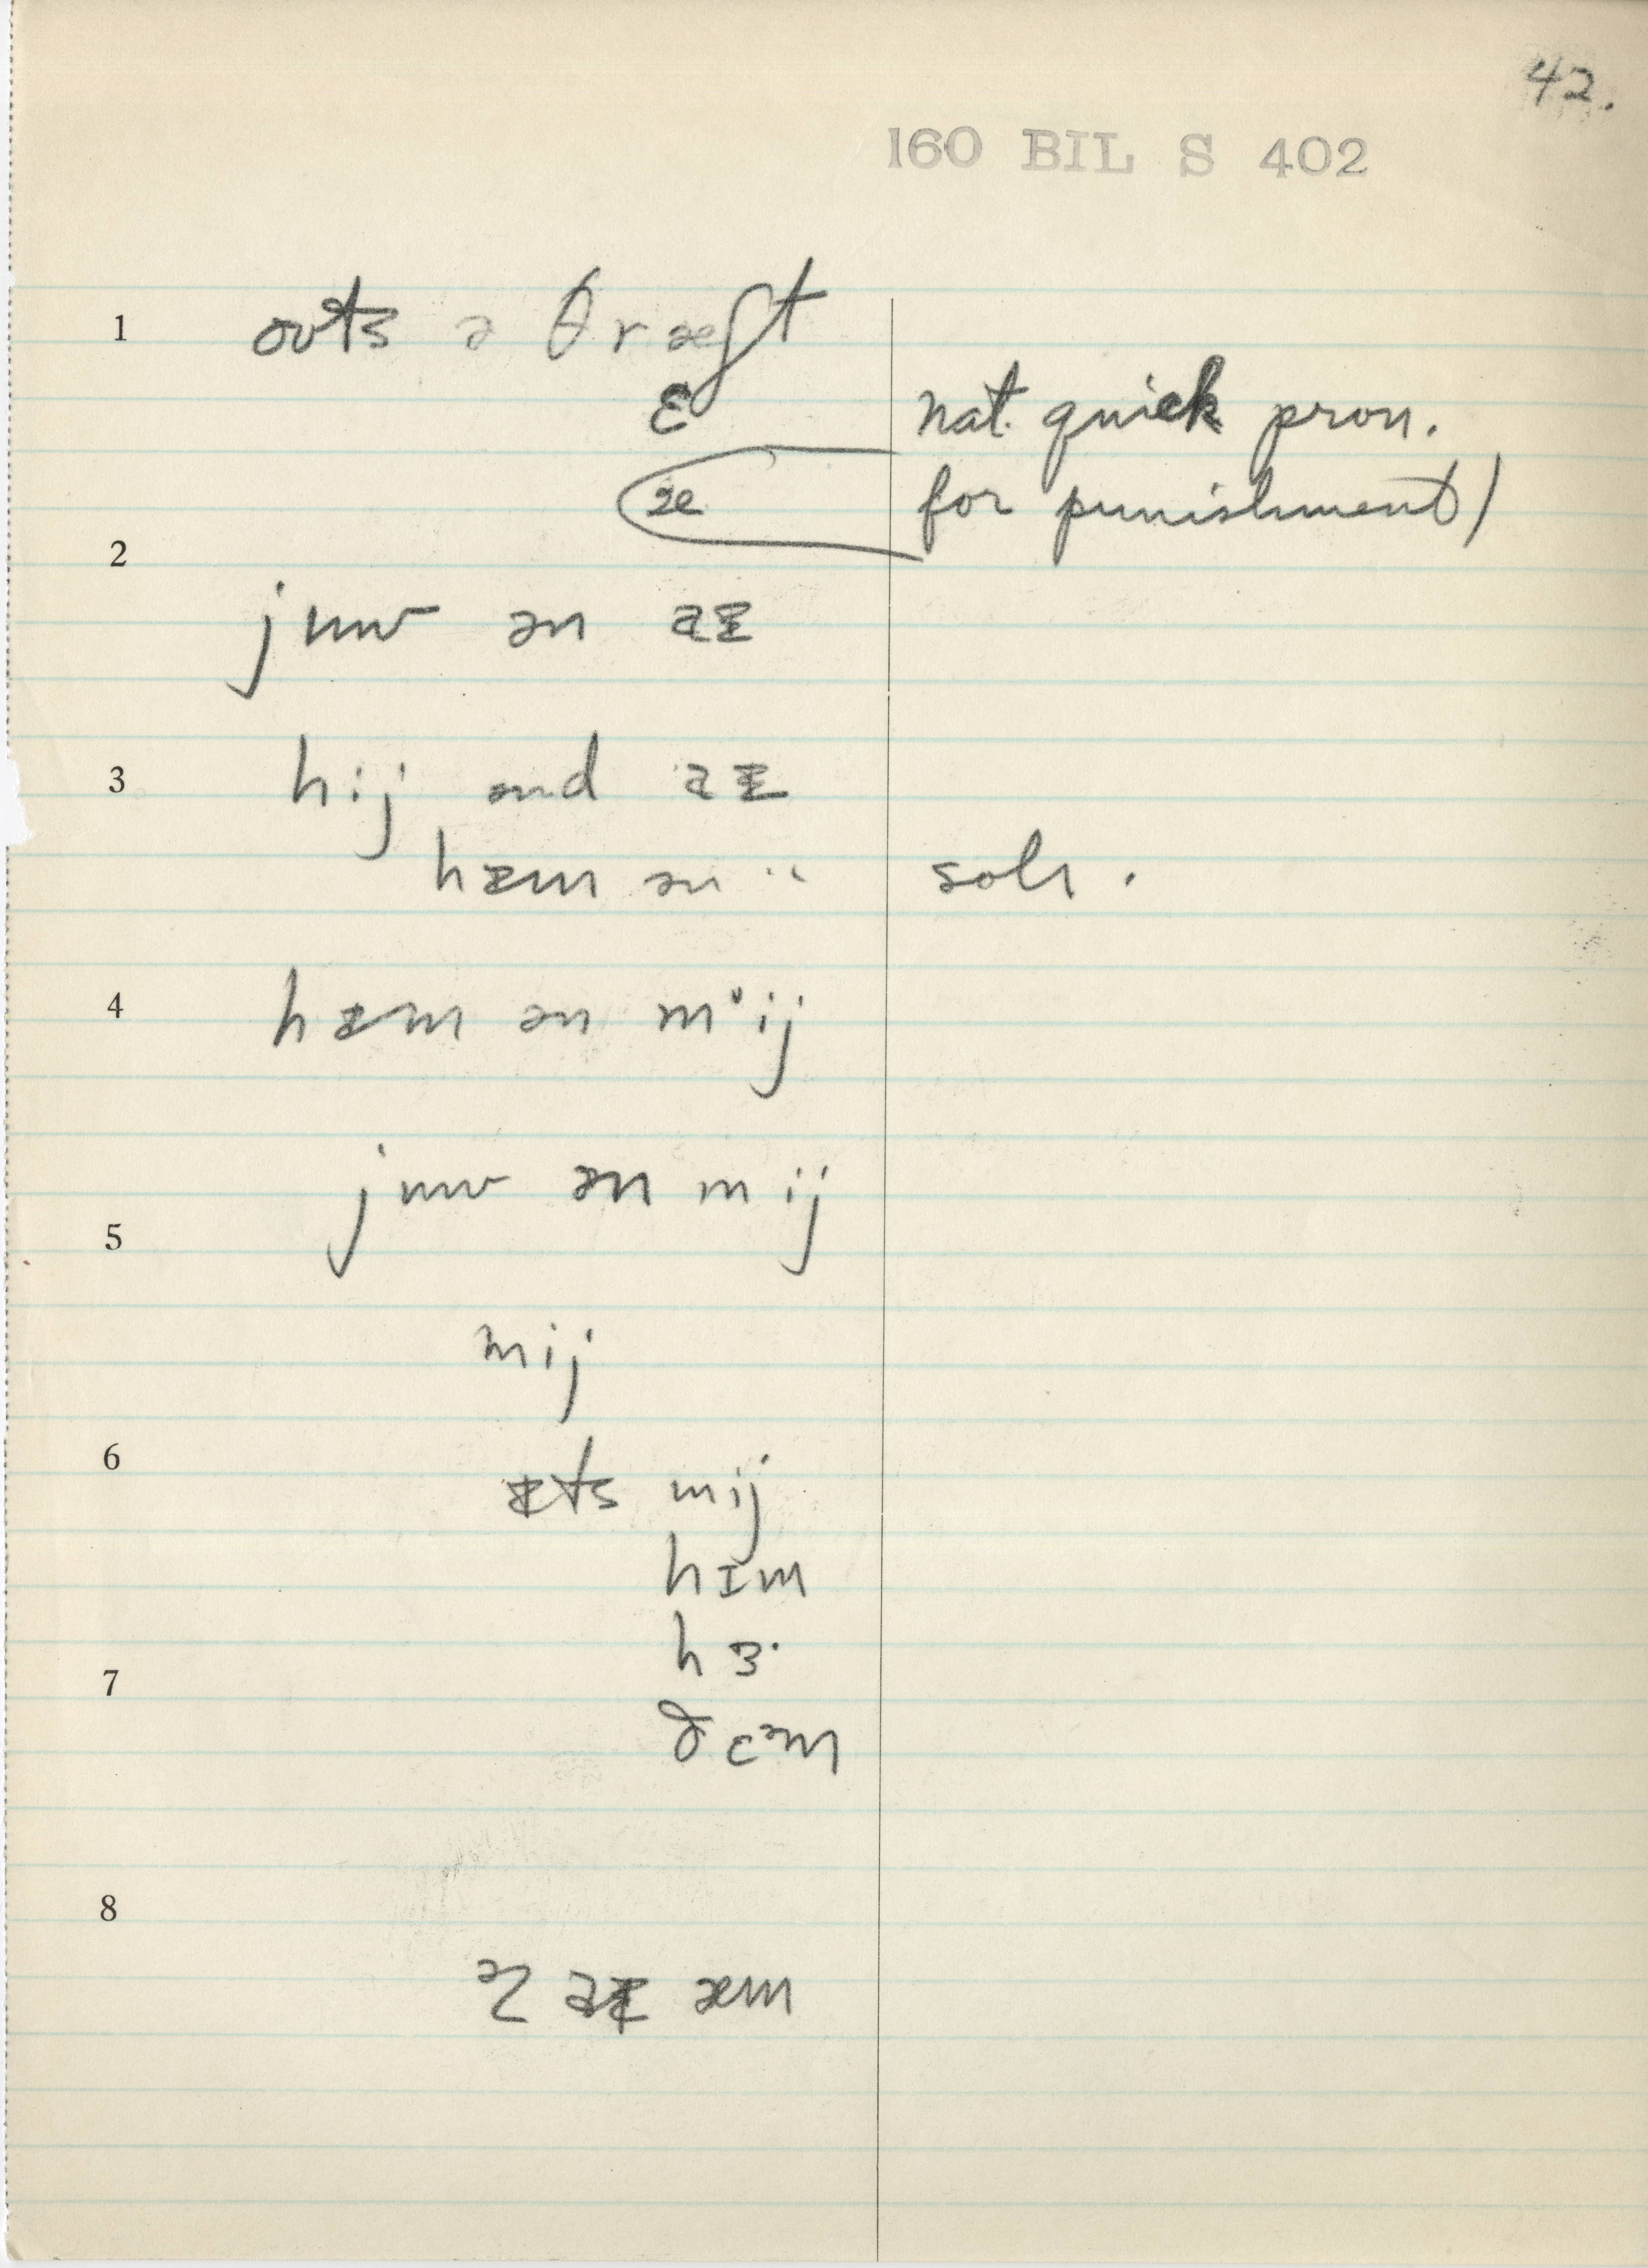 42.
160 BIL S 402
1 oʊts ə θræft
ɛ nat. quick pron.
æ for punishment)
2
juw ən aᵻ
3 hij ənd aᵻ
hᵻm ən " soh.
4 hᵻm ən mˈij
juw ən mij
5
mij
6
ᵻts mij
hɪm
7 hɜ·
ðɛᵊm
8
əz aᵻ æm